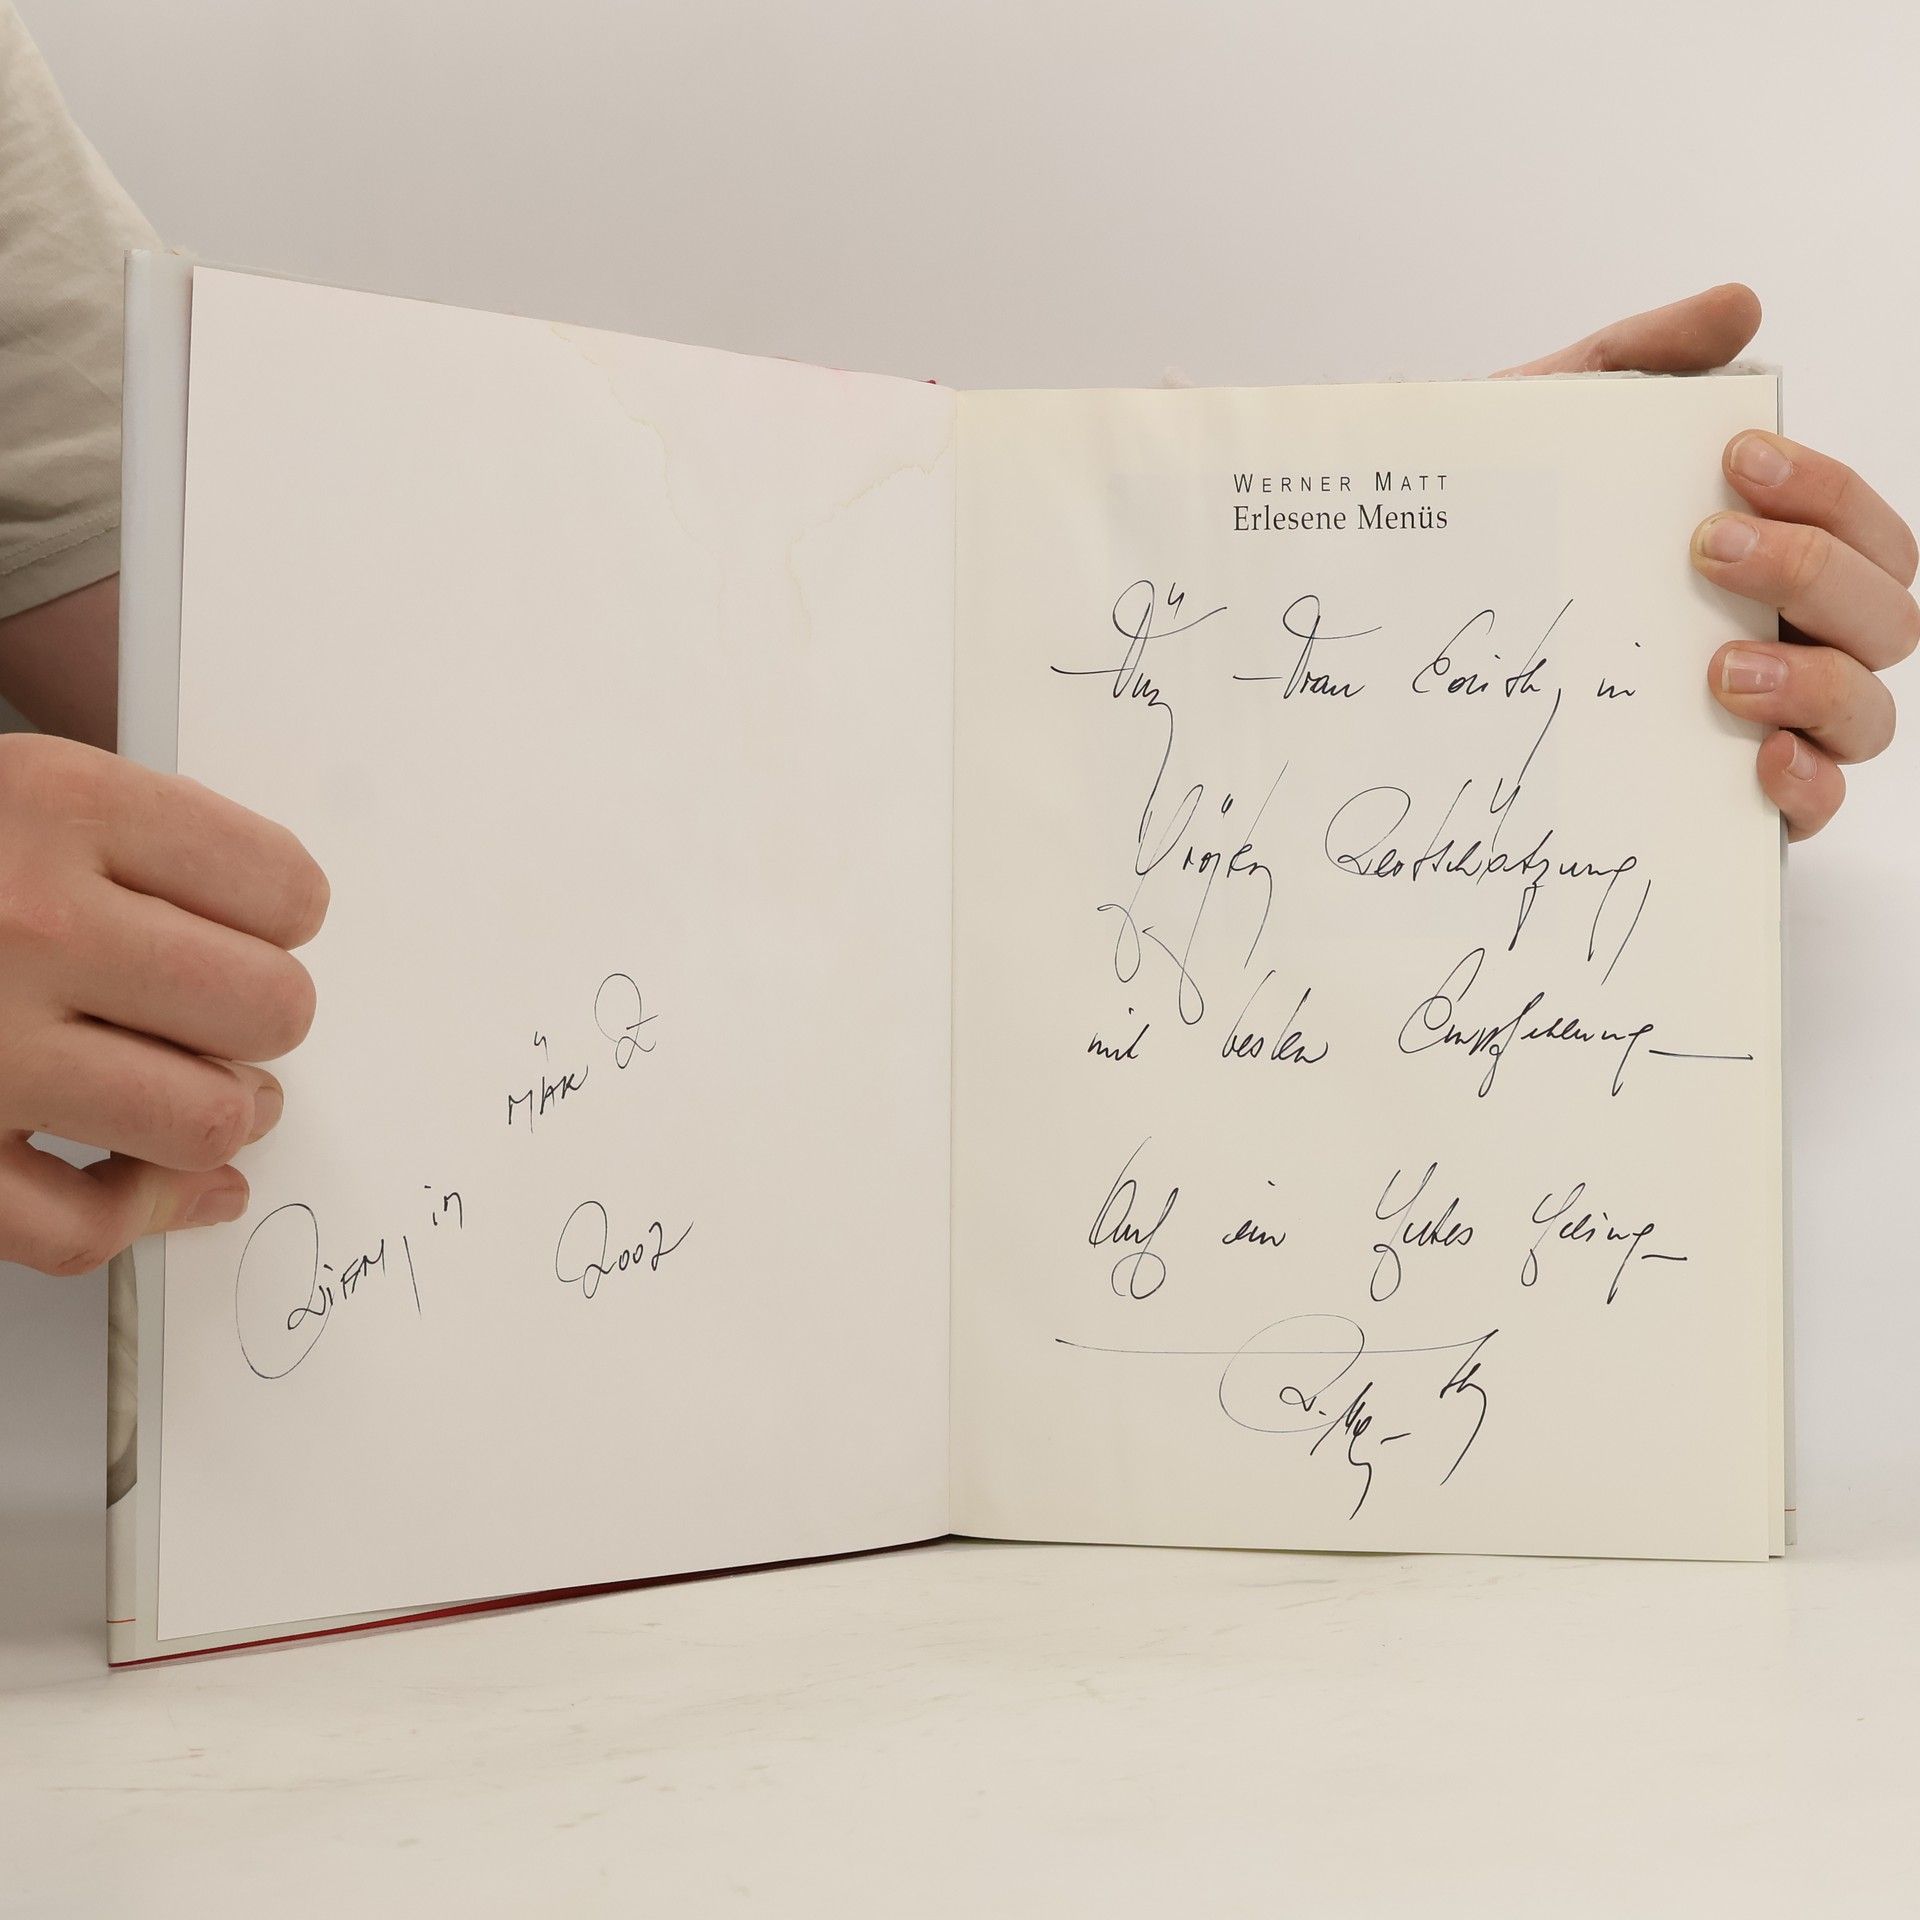 MÄRZ
WIEN, im
2002
WERNER MATT
Erlesene Menüs
Für Frau Edith, in
größter Wertschätzung,
mit besten Empfehlung
Auf ein Gutes Geling